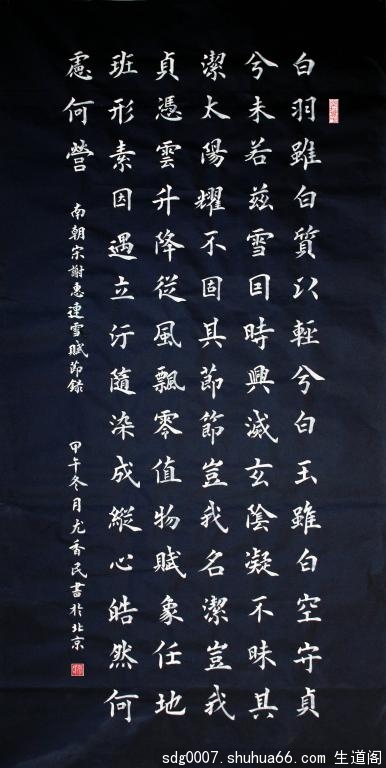 白羽雖白質以輕兮白玉雖白空守貞
兮未若茲雪因時興滅玄陰凝不昧其
潔太陽耀不固其莭節豈我名潔豈我
貞憑雲升降從風飄零值物賦象任地
班形素因遇立汙隨染成縱心皓然何
慮何營
南朝宋謝惠連雪賦莭錄 甲午冬月尤香民書於北京
sdg0007.shuhua66.com 生道阁